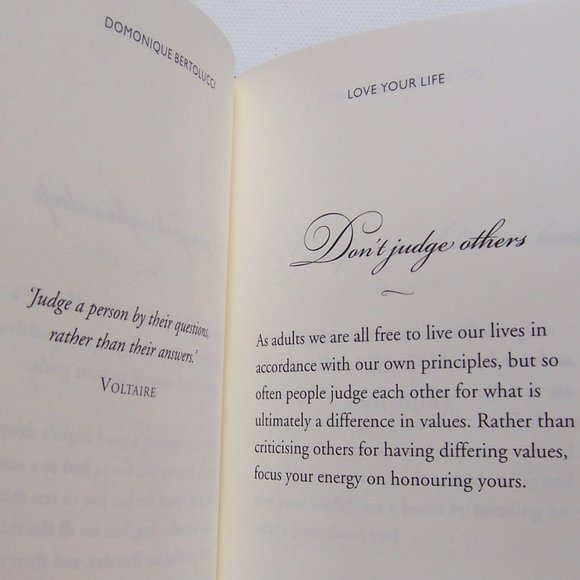 DOMONIQUE BERTOLUCCI
'Judge a person by their questions,
rather than their answers.'
VOLTAIRE
LOVE YOUR LIFE
Don't judge others
As adults we are all free to live our lives in
accordance with our own principles, but so
often people judge each other for what is
ultimately a difference in values. Rather than
criticising others for having differing values,
focus your energy on honouring yours.